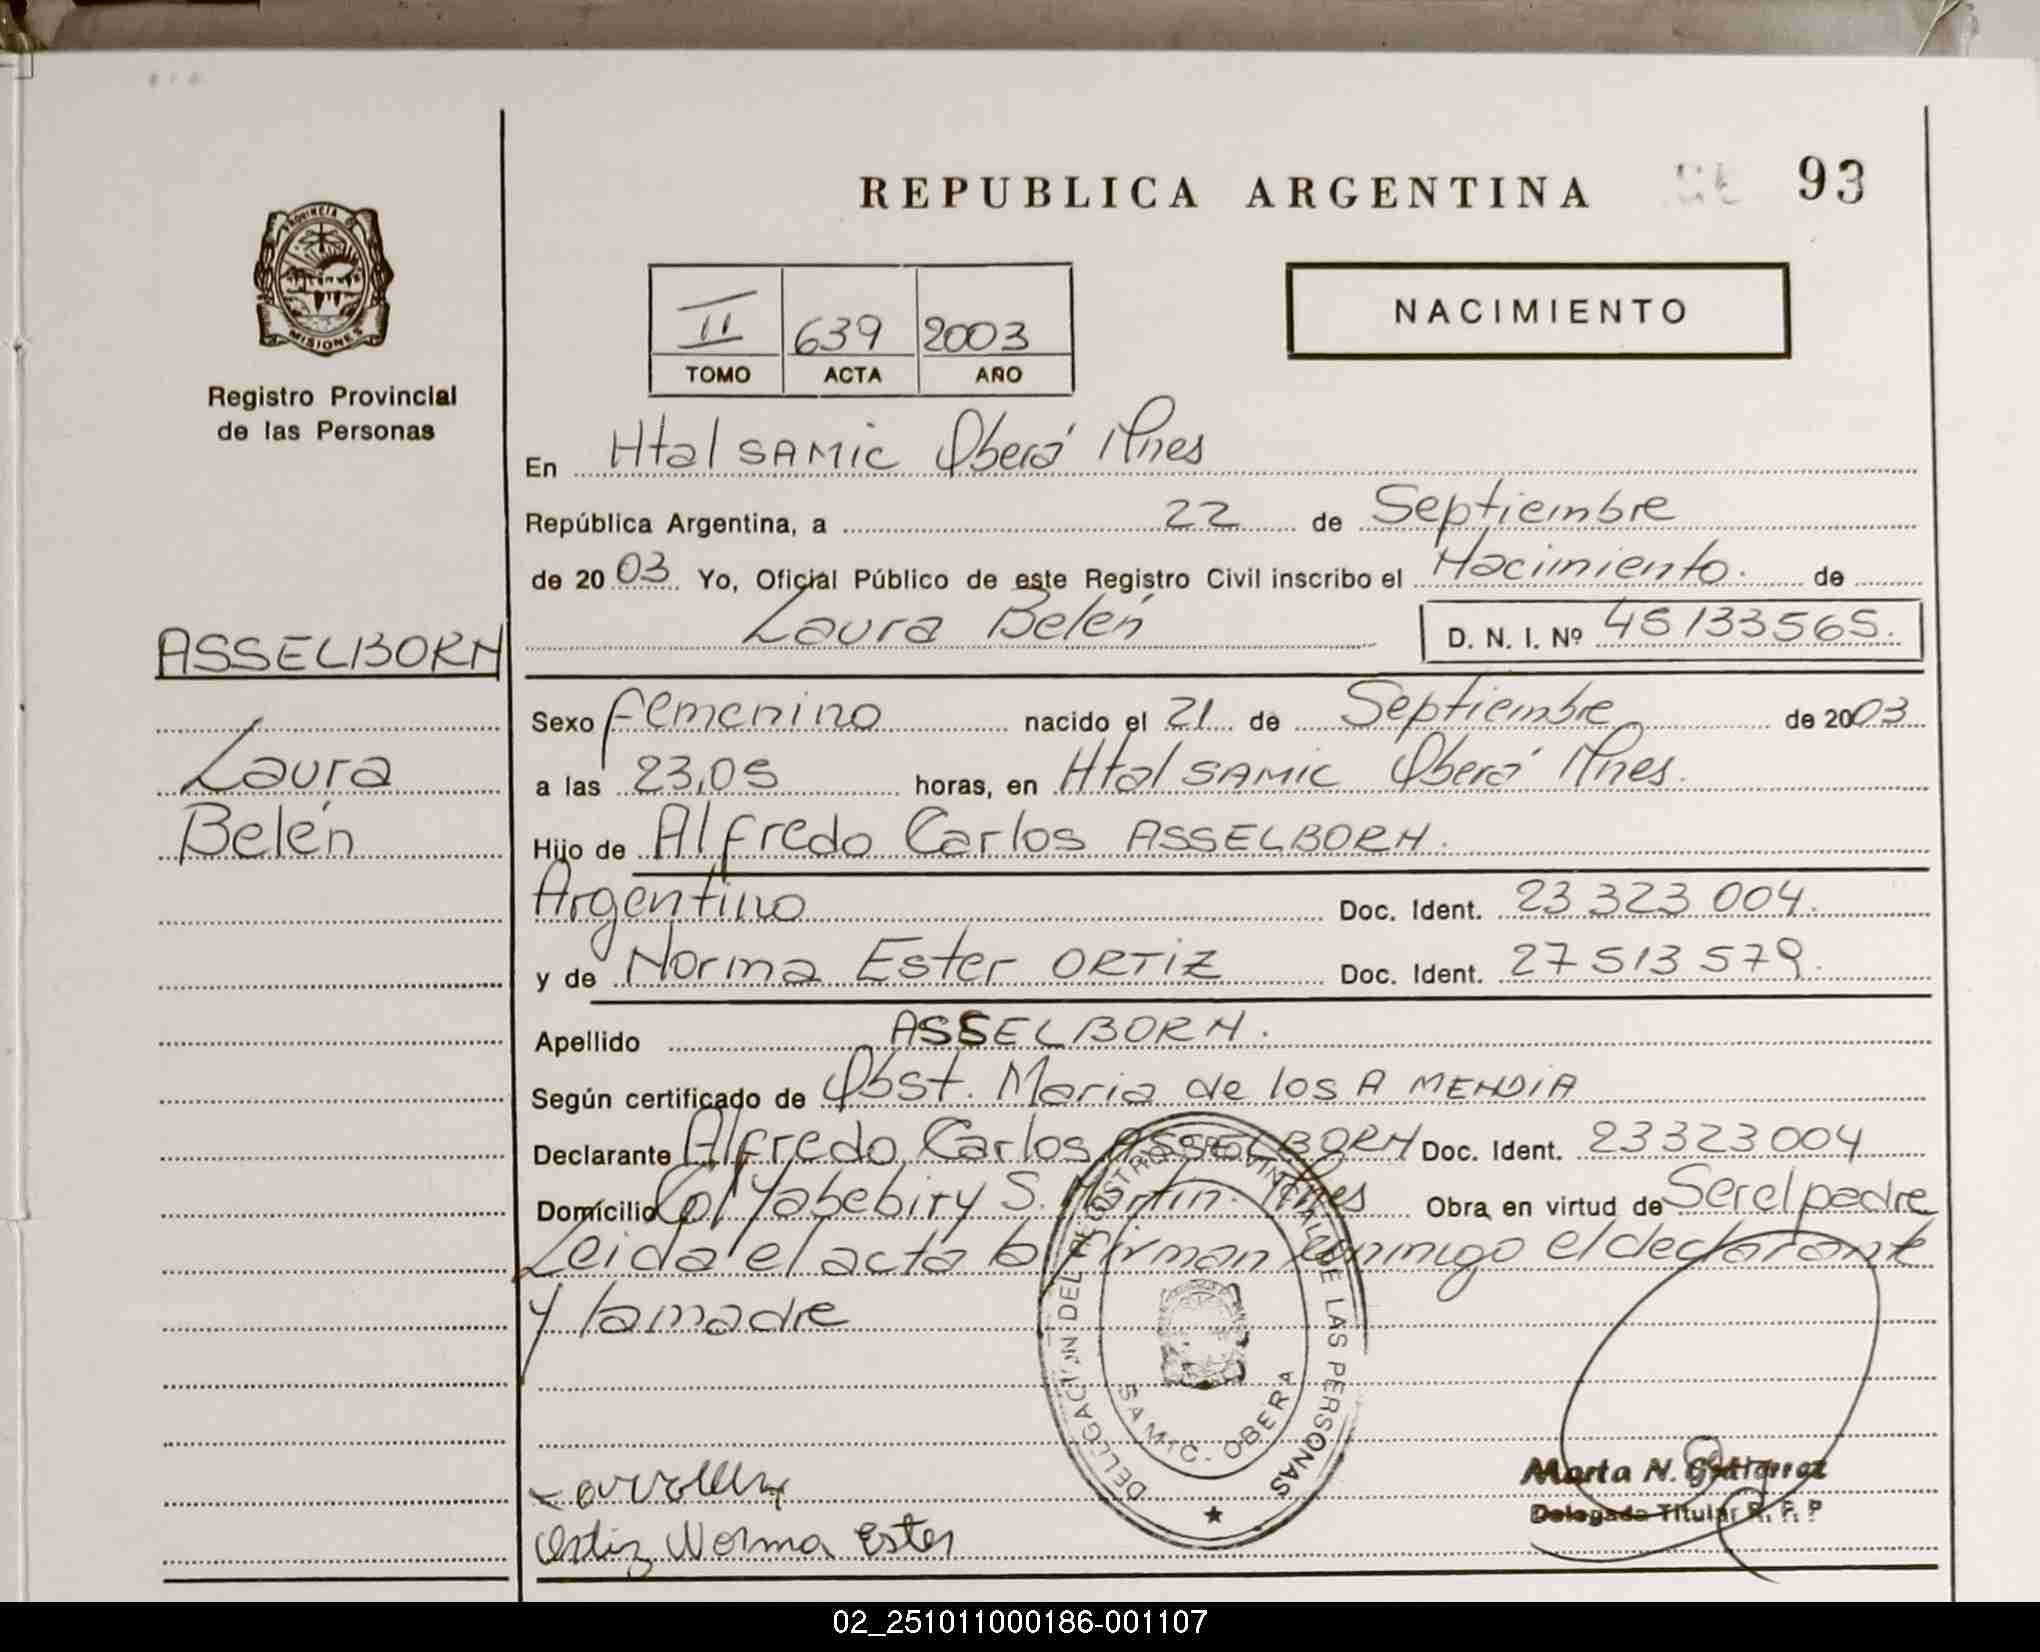 REPUBLICA ARGENTINA
93
PROVINCIA DE MISIONES
Registro Provincial
de las Personas
II 639 2003
TOMO ACTA AÑO
NACIMIENTO
En Htal SAMIC Oberá Mnes
República Argentina, a 22 de Septiembre
de 2003 Yo, Oficial Público de este Registro Civil inscribo el Nacimiento. de
Laura Belén D. N. I. Nº 45133565.
ASSELBORN
Laura
Belén
Sexo Femenino nacido el 21 de Septiembre de 2003
a las 23,05 horas, en Htal SAMIC Oberá Mnes.
Hijo de Alfredo Carlos ASSELBORN.
Argentino Doc. Ident. 23 323 004.
y de Norma Ester ORTIZ Doc. Ident. 27 513 579.
Apellido ASSELBORN.
Según certificado de Obst. Maria de los A MENDIA
Declarante Alfredo Carlos ASSELBORN Doc. Ident. 23323004
Domicilio Col Yabebiry S. Martin. Mnes Obra en virtud de Ser el padre
Leida el acta la firman conmigo el declarante
y la madre
DELEGACION DEL REGISTRO PROVINCIAL DE LAS PERSONAS
SAMIC - OBERA
Ortiz Norma Ester
Marta N. Gutierrez
Delegada Titular R. P. P
02_251011000186-001107